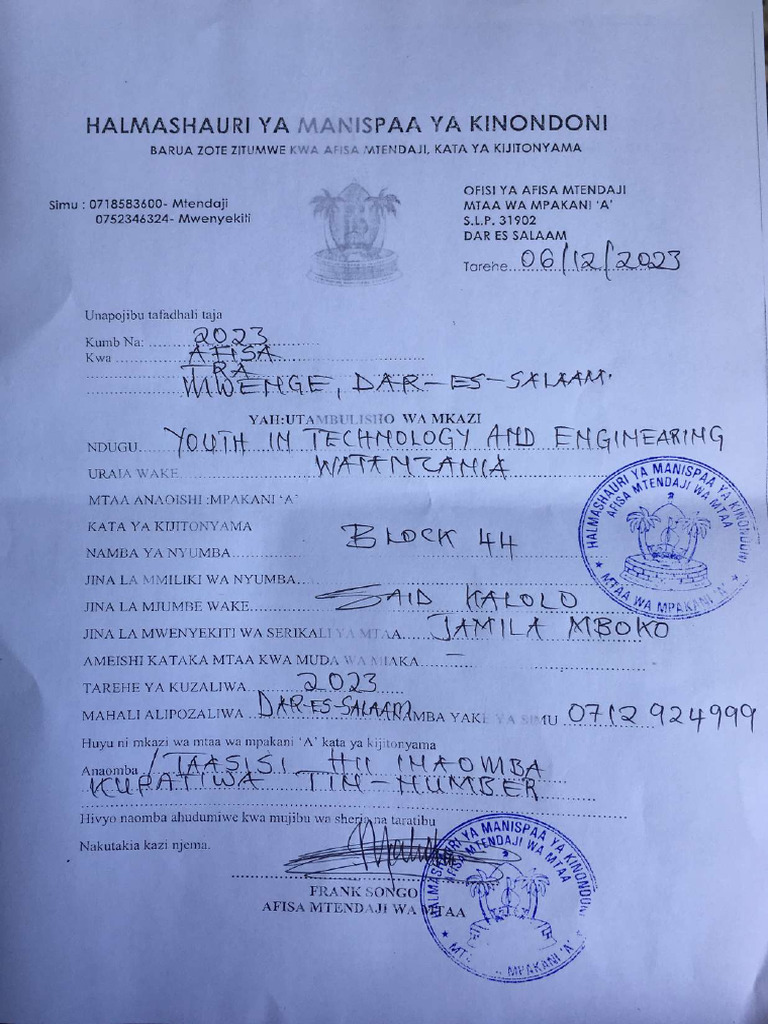 HALMASHAURI YA MANISPAA YA KINONDONI
BARUA ZOTE ZITUMWE KWA AFISA MTENDAJI, KATA YA KIJITONYAMA
Simu : 0718583600- Mtendaji
0752346324- Mwenyekiti
OFISI YA AFISA MTENDAJI
MTAA WA MPAKANI 'A'
S.L.P. 31902
DAR ES SALAAM
Tarehe...06/12/2023
Unapojibu tafadhali taja
Kumb Na: 2023
Kwa AFISA
TRA
MWENGE, DAR-ES-SALAAM.
YAH:UTAMBULISHO WA MKAZI
NDUGU. YOUTH IN TECHNOLOGY AND ENGINEARING
URAIA WAKE WATANZANIA
MTAA ANAOISHI :MPAKANI 'A'
KATA YA KIJITONYAMA
NAMBA YA NYUMBA BLOCK 44
JINA LA MMILIKI WA NYUMBA
JINA LA MJUMBE WAKE SAID KALOLO
JINA LA MWENYEKITI WA SERIKALI YA MTAA JAMILA MBOKO
AMEISHI KATAKA MTAA KWA MUDA WA MIAKA –
TAREHE YA KUZALIWA 2023
MAHALI ALIPOZALIWA DAR-ES-SALAAM NAMBA YAKE YA SIMU 0712 924999
Huyu ni mkazi wa mtaa wa mpakani 'A' kata ya kijitonyama
Anaomba / TAASISI HII INAOMBA
KUPATIWA TIN-NUMBER
Hivyo naomba ahudumiwe kwa mujibu wa sheria na taratibu
Nakutakia kazi njema.
FRANK SONGO
AFISA MTENDAJI WA MTAA
HALMASHAURI YA MANISPAA YA KINONDONI
AFISA MTENDAJI WA MTAA
* MTAA WA MPAKANI 'A' *
HALMASHAURI YA MANISPAA YA KINONDONI
AFISA MTENDAJI WA MTAA
MPAKANI 'A'